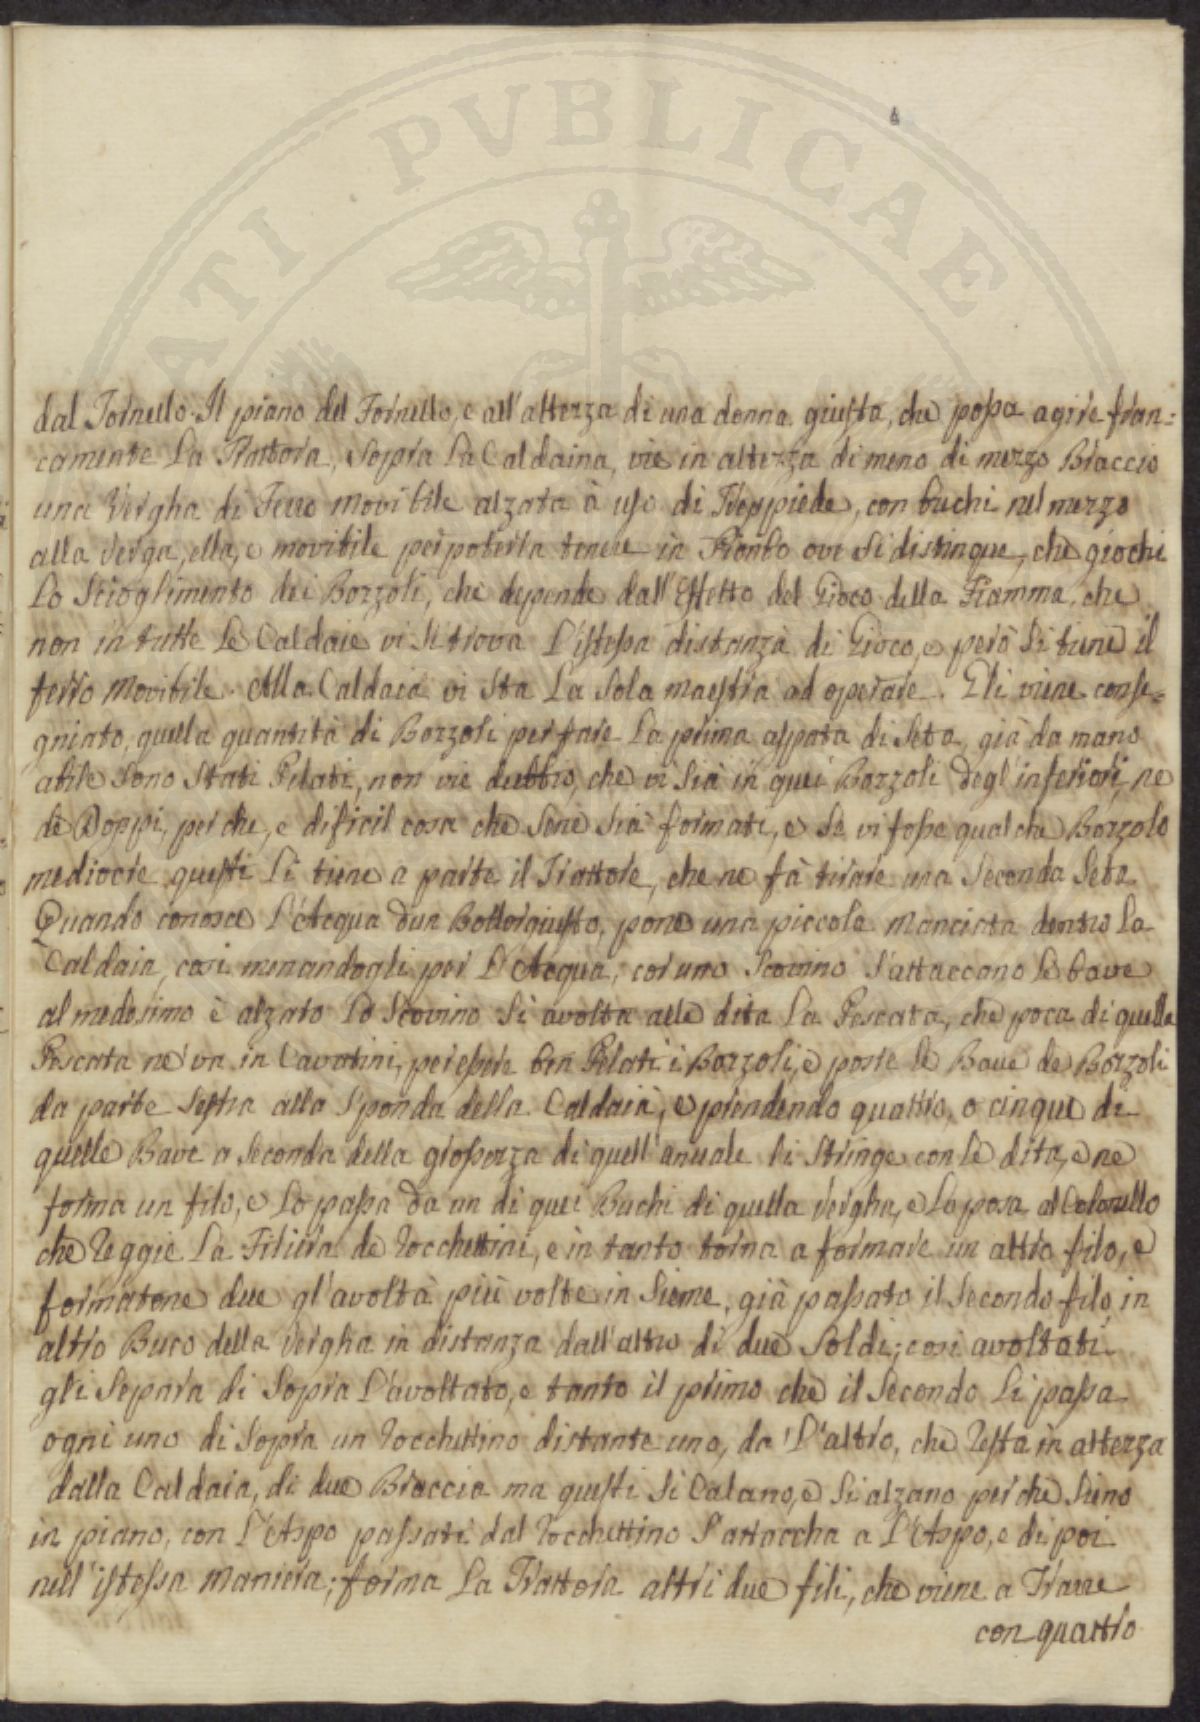 ATI PVBLICAE
dal Fornello. Il piano del Fornello, e all'altezza di una donna giusta, che possa agire fran=
camente La Trattora, Sopra La Caldaina, vie in altezza di meno di mezzo Braccio
una Vergha di Ferro movibile alzata à uso di Treppiede, con buchi nel mezzo
alla Verga, ella, e movibile per poterla tenere in Piombo ove Si distingue, che giochi
Lo Scioglimento dei Bozzoli, che depende dall'Effetto del Gioco della Fiamma, che
non in tutte Le Caldaie vi Si trova L'istessa distanza di Gioco, e però Si tiene il
ferro Movibile. Alla Caldaia vi Sta La Sola maestra ad operare. Gli viene conse=
gniato, quella quantità di Bozzoli per fare La prima aspata di Seta, già da mano
abile Sono Stati Pelati, non vie dubbio, che vi Sia in quei Bozzoli degl'inferiori, ne
di Doppi, perche, e dificil cosa che Sene Sia formati, e Se vi fosse qualche Bozzolo
mediocre questi Si tiene a parte il Trattore, che ne fà tirare una Seconda Seta
Quando conosce L'Acqua d'un Bollor giusto, pone una piccola manciata dentro La
Caldaia, cosi menandogli per L'Acqua, con uno Scovino S'attaccono Le bave
al medesimo è alzato Lo Scovino Si avolta alle dita La Pescata, che poca di quella
Pescata ne va in Cavatini, per essere ben Pelati i Bozzoli, e poste Le Bave de Bozzoli
da parte Sestra alla Sponda della Caldaia, e prendendo quattro, o cinque di
quelle Bave a Seconda della grossezza di quell'annuale Si Stringe con le dita, e ne
forma un filo, e Lo passa da un di quei Buchi di quella Vergha, e La posa al Colonello
che Reggie La Filiera de Rocchettini, e in tanto torna a formare un altro filo, e
formatone due gl'avoltà più volte in Sieme, già passato il Secondo filo, in
altro Buco della Vergha in distanza dall'altro di due Soldi; cosi avoltati
gli Separa di Sopra L'avoltato, e tanto il primo che il Secondo Si passa
ogni uno di Sopra un Rocchettino distante uno, da L'altro, che Resta in altezza
dalla Caldaia, di due Braccia ma questi Si Calano, e Si alzano perche Sieno
in piano, con L'Aspo passati dal Rocchettino S'attaccha a L'Aspo, e di poi
nell'istessa maniera; forma La Trattora altri due fili, che viene a Trarre
con quattro